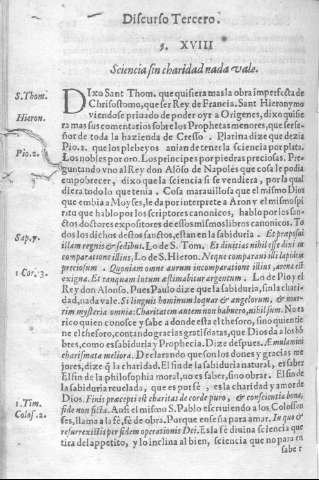 Discurso Tercero.
§. XVIII
Sciencia sin charidad nada vale.
S. Thom.
Hieron.
Pio. 2.
Sap. 7.
1 Cor. 13.
1. Tim.
Colos. 2.
DIxo Sant Thom. que quisiera mas la obra imperfecta de
Chrisostomo, que ser Rey de Francia. Sant Hieronymo
viendose priuado de poder oyr a Origenes, dixo quisie
ra mas sus comentarios sobre los Prophetas menores, que ser se
ñor de toda la hazienda de Cresso. Platina dize que dezia
Pio. 2. que los plebeyos auian de tener la sciencia por plata.
Los nobles por oro. Los principes por piedras preciosas. Pre
guntando vno al Rey don Alõso de Napoles que cosa le podia
empobrecer, dixo que la sciencia si se vendiera, por la qual
diera todo lo que tenia. Cosa marauillosa que el mismo Dios
que embia a Moyses, le da por interprete a Aron y el mismo spi
ritu que hablo por los scriptores canonicos, hablo por los san-
ctos doctores expositores de essos mismos libros canonicos. To
dos los dichos destos sanctos, estan en la sabiduria. Et præposui
illam regnis & sedibus. Lo de S. Tom. Et diuitias nihil esse dixi in
comparatione illius. Lo de S. Hieron. Neque comparaui illi lapidem
preciosum. Quoniam omne aurum in comparatione illius, arena est
exigua. Et tanquam lutum æstimabitur argentum. Lo de Pio y el
Rey don Alonso. Pues Paulo dize que la sabiduria, sin la chari
dad, nada vale. Si linguis hominum loquar & angelorum, & noue-
rim mysteria omnia: Charitatem autem non habuero, nihil sum. No es
rico quien conosce y sabe a donde esta el thesoro, sino quien tie
ne el thesoro, contando gracias gratisdatas, que Dios da a los hõ
bres, como es sabiduria y Prophecia. Dize despues. Æmulamini
charismata meliora. Declarando que son los dones y gracias me
jores, dize q̃ la charidad. El fin de la sabiduria natural, es saber
El fin de la philosophia moral, no es saber, sino obrar. El fin de
la sabiduria reuelada, que es por fê, es la charidad y amor de
Dios. Finis præcepti est charitas de corde puro, & conscientia bona,
fide non ficta. Assi el mismo S. Pablo escriuiendo a los Colossen
ses, llama a la fê, fê de obra. Porque enseña para amar. In quo &
resurrexistis per fidem operationis Dei. Es la fê diuina sciencia que
tica del appetito, y lo inclina al bien, sciencia que no para en
saber